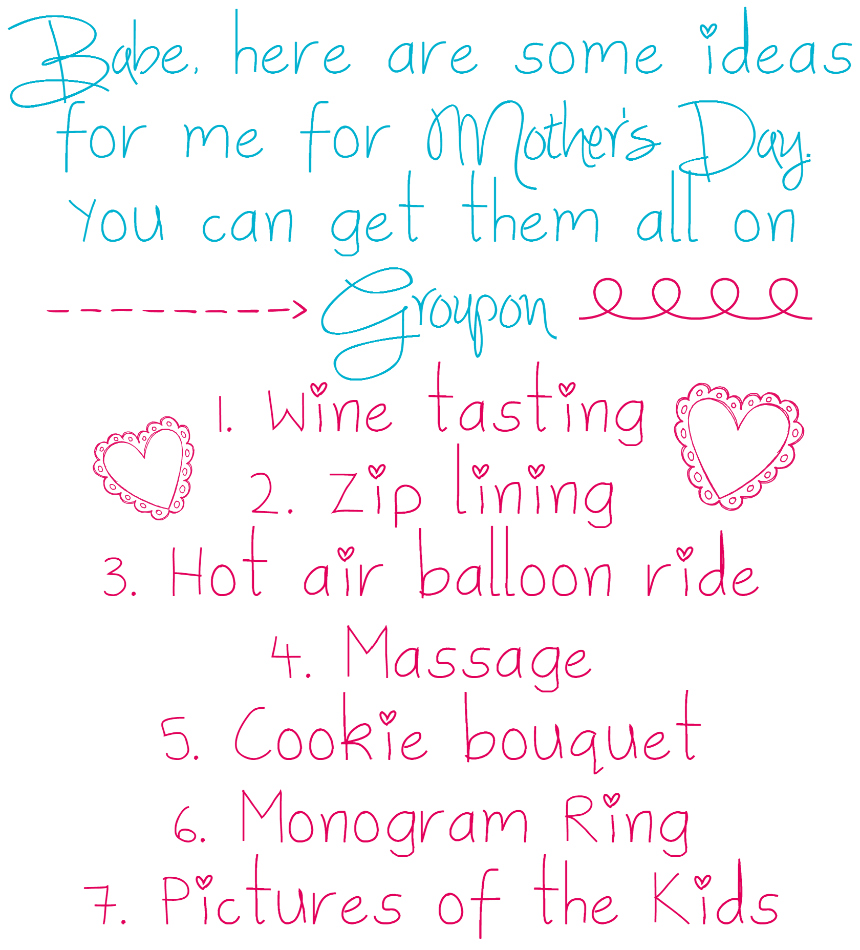 Babe, here are some ideas
for me for Mother's Day.
You can get them all on
Groupon
1. Wine tasting
2. Zip lining
3. Hot air balloon ride
4. Massage
5. Cookie bouquet
6. Monogram Ring
7. Pictures of the Kids